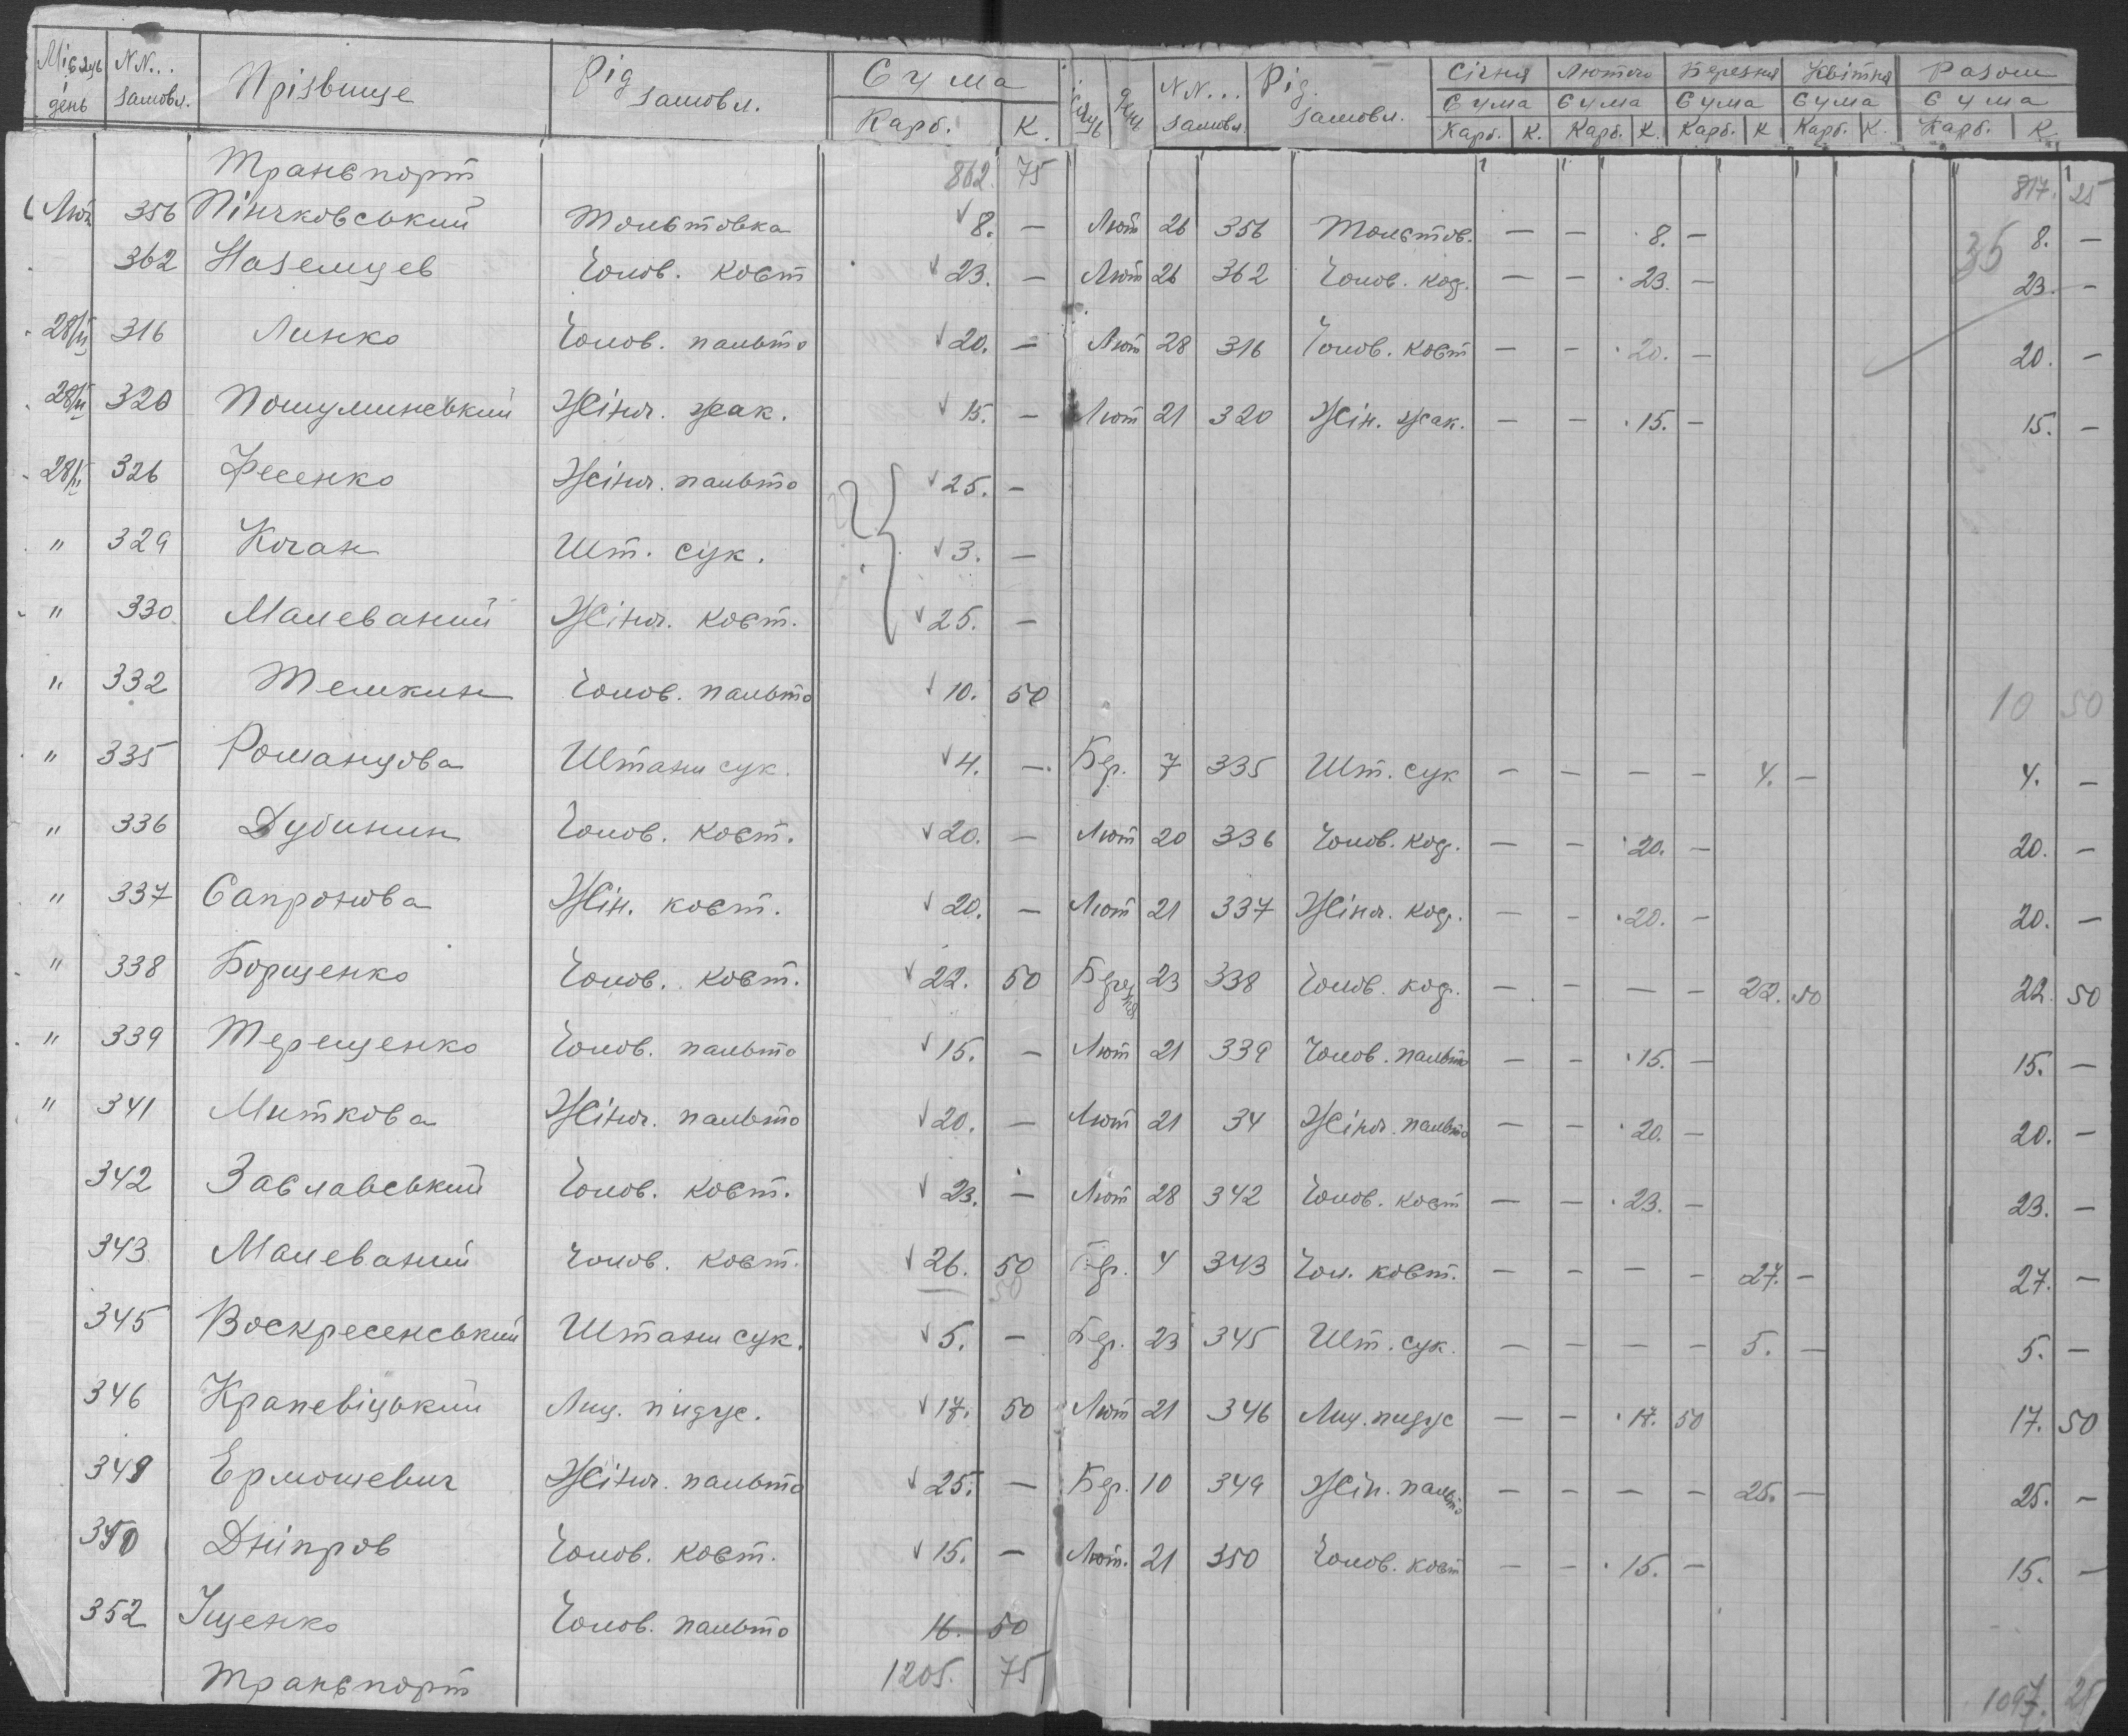 Місяць день NN... замовл. Прізвище Рід замовл. Сума Карб. К. Місяць День NN... замовл. Рід замовл. Січня Лютого Березня Квітня Разом
Сума Сума Сума Сума Сума
Карб. К. Карб. К. Карб. К Карб. К. Карб. К.
Транспорт 862. 75 817. 25
Лют 356 Пінчковський Толстовка 8. — Лют 26 356 Толстов. — — 8. — 8. —
362 Наземцев Чолов. кост 23. — Лют 26 362 Чолов. кос. — — 23. — 35 23. —
28/II 316 Линко Чолов. пальто 20. — Лют 28 316 Чолов. кост — — 20. — 20. —
28/II 320 Пошулинський Жіноч. жак. 15. — Лют 21 320 Жін. жак. — — 15. — 15. —
28/II 326 Фесенко Жіноч. пальто 25. —
" 329 Кочан Шт. сук. 3. —
" 330 Малеваний Жіноч. кост. 25. —
" 332 Темкин Чолов. пальто 10. 50 10 50
" 335 Романцова Штани сук. 4. — Бер. 7 335 Шт. сук — — — — 4. — 4. —
" 336 Дубинин Чолов. кост. 20. — Лют 20 336 Чолов. кос. — — 20. — 20. —
" 337 Сапронова Жін. кост. 20. — Лют 21 337 Жіноч. кос. — — 20. — 20. —
" 338 Борщенко Чолов. кост. 22. 50 Березня 23 338 Чолов. кос. — — — — 22. 50 22. 50
" 339 Терещенко Чолов. пальто 15. — Лют 21 339 Чолов. пальто — — 15. — 15. —
" 341 Миткова Жіноч. пальто 20. — Лют 21 34 Жіноч. пальто — — 20. — 20. —
342 Заславський Чолов. кост. 23. — Лют 28 342 Чолов. кост — — 23. — 23. —
343 Малеваний Чолов. кост. 26. 50 Бер. 4 343 Чол. кост. — — — — 27. — 27. —
50
345 Воскресенський Штани сук. 5. — Бер. 23 345 Шт. сук. — — — — 5. — 5. —
346 Крапевіцький Лиц. пидус. 17. 50 Лют 21 346 Лиц. пидус — — 17. 50 17. 50
349 Ермошевич Жіноч. пальто 25. — Бер. 10 349 Жін. пальто — — — — 25. — 25. —
350 Дніпров Чолов. кост. 15. — Лют. 21 350 Чолов. кост — — 15. — 15. —
352 Іщенко Чолов. пальто 16. 50
Транспорт 1205. 75 1097. 25